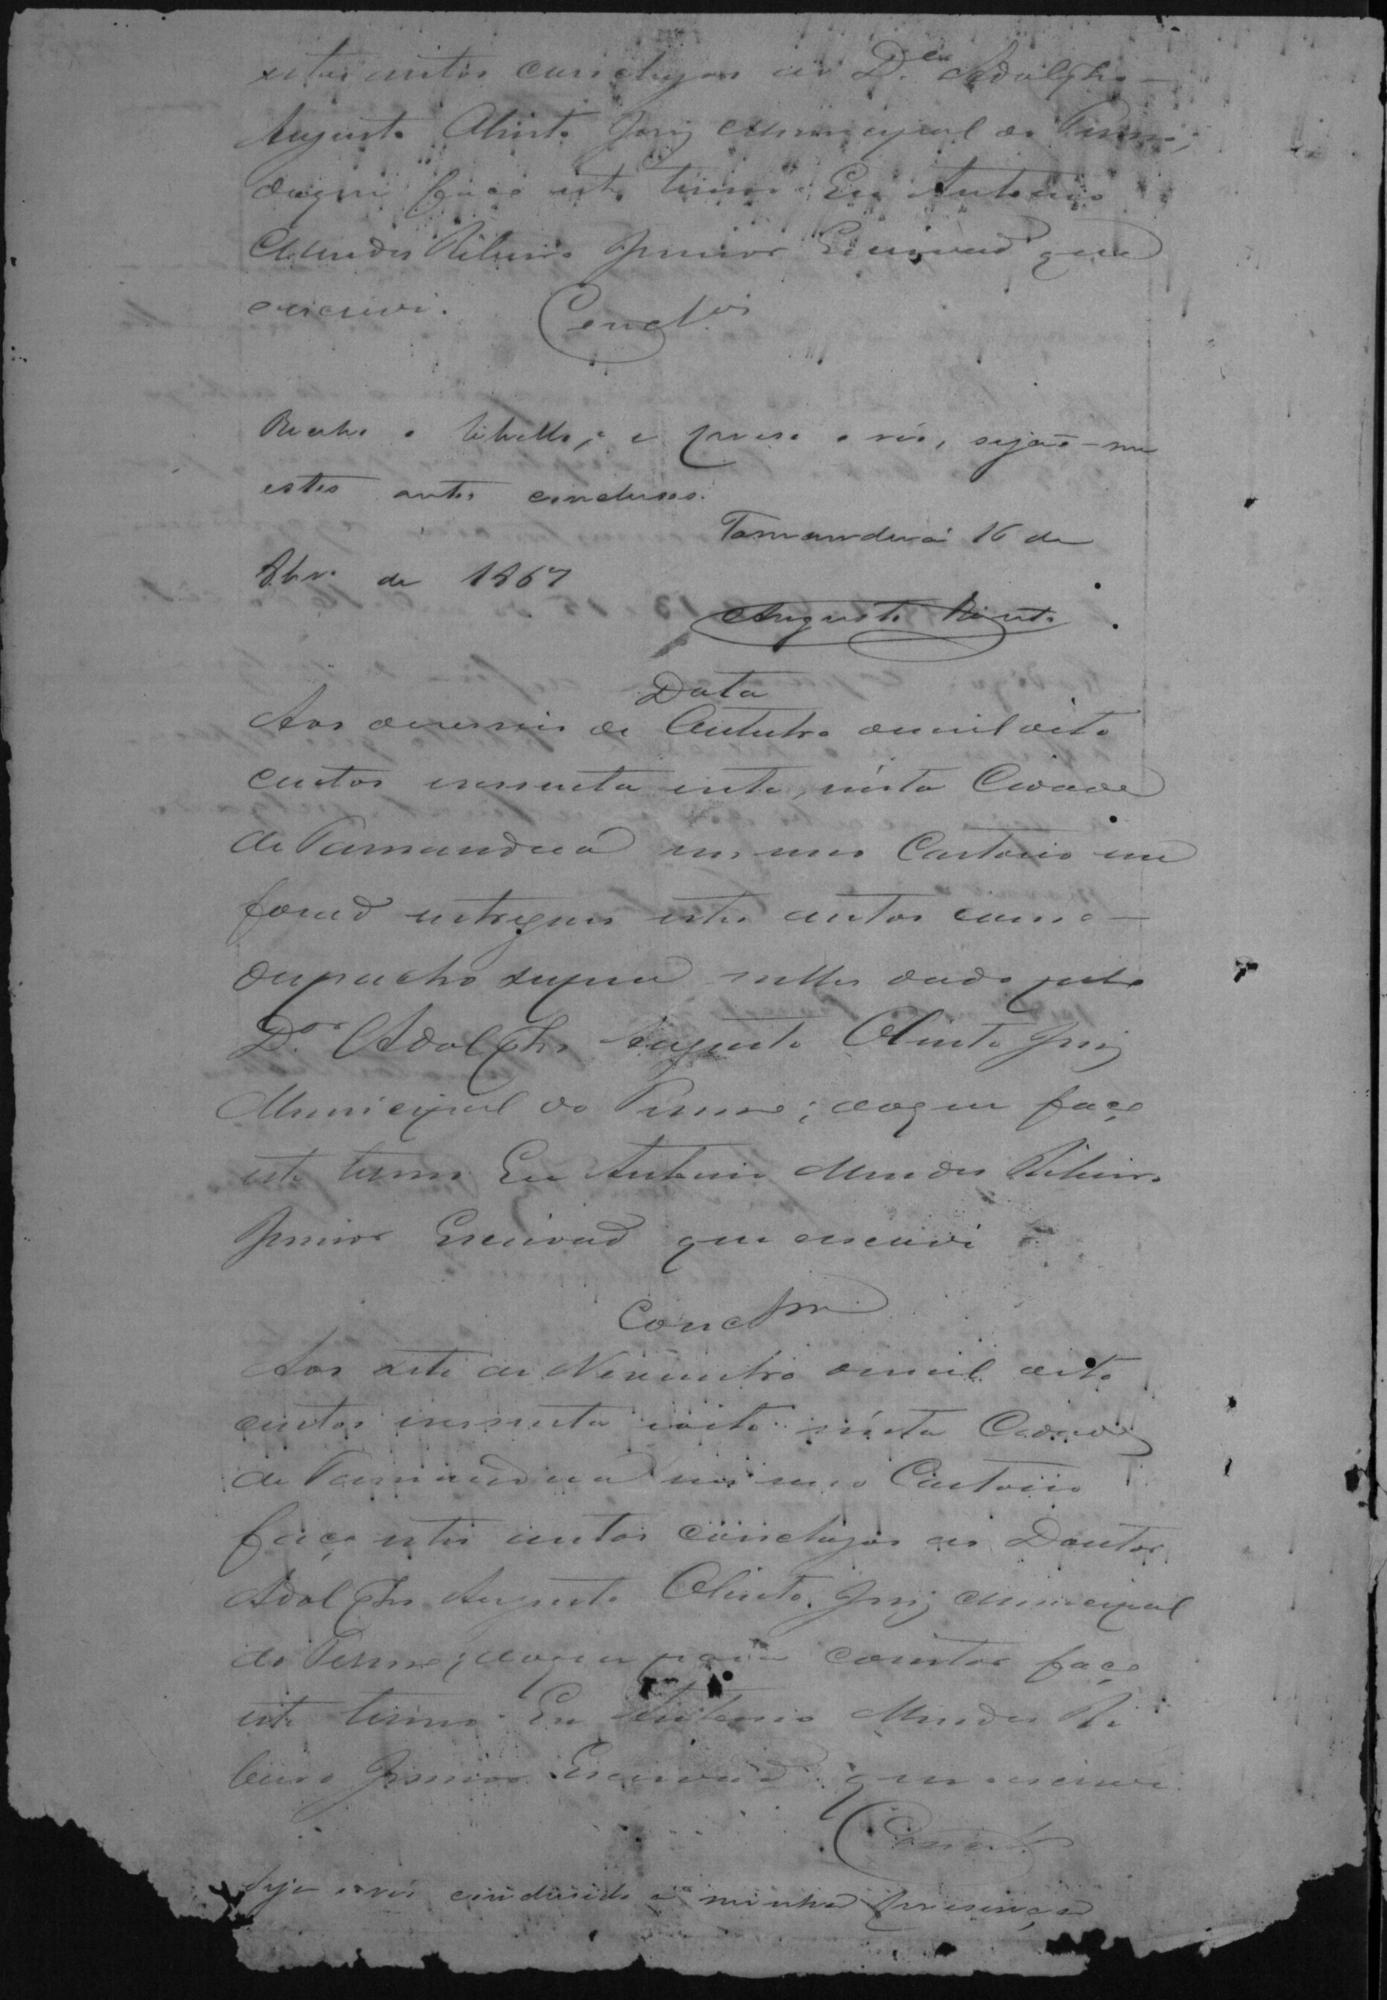 estes autos conclusos ao D.or Adolpho
Augusto Olinto Juiz Municipal do Termo,
doque faço este termo. Eu Antonio
Mendes Ribeiro Junior Escrivaõ que
escrevi. Concl.os
Recebo o libello, e preso o réo, sejaõ-me
estes autos conclusos.
Tamanduá 16 de
de 1867
Augusto Olinto
Data
Aos deseseis de Outubro de mil oito
centos e sessenta e sete, nésta Cidade
de Tamandua em meu Cartorio me
foraõ entregues estes autos com o
despacho supra nelles dado pelo
D.or Adolpho Augusto Olinto Juiz
Municipal do Termo; doque faço
este termo. Eu Antonio Mendes Ribeiro
Junior Escrivaõ que escrevi
Concl.am
Aos sete de Novembro de mil oito
centos e sessenta e oito nésta Cidade
de Tamandua em meu Cartorio
faço estes autos conclusos ao Doutor
Adolpho Augusto Olinto, Juiz Municipal
do Termo; doque para constar faço
este termo. Eu Antonio Mendes Ri
beiro Junior Escrivaõ que escrevi.
Concl.os
Seja o réo condusido a minha presença